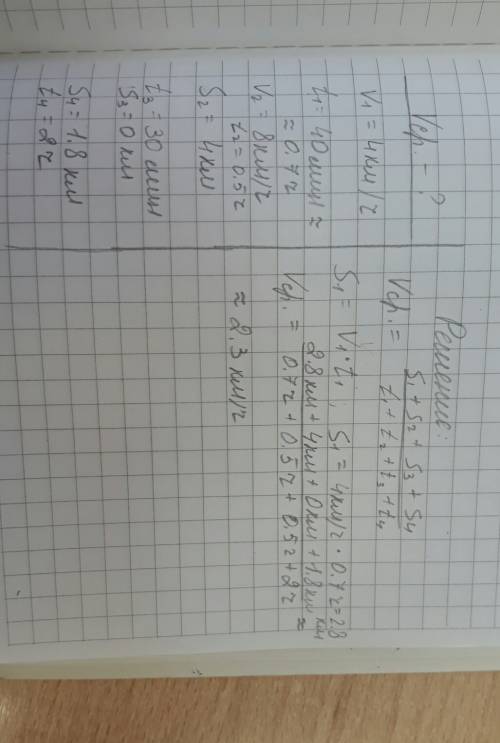 Vср. - ?
V1 = 4км/г
t1 = 40 мин ≈
≈ 0.7г
V2 = 8км/г
t2 = 0.5г
S2 = 4км
t3 = 30 мин
S3 = 0 км
S4 = 1.8 км
t4 = 2г
Решение:
Vср. = (S1 + S2 + S3 + S4) / (t1 + t2 + t3 + t4)
S1 = V1 · t1 ; S1 = 4км/г · 0.7г = 2.8 км
Vср. = (2.8 км + 4км + 0км + 1.8 км) / (0.7г + 0.5г + 0.5г + 2г) ≈
≈ 2.3 км/г